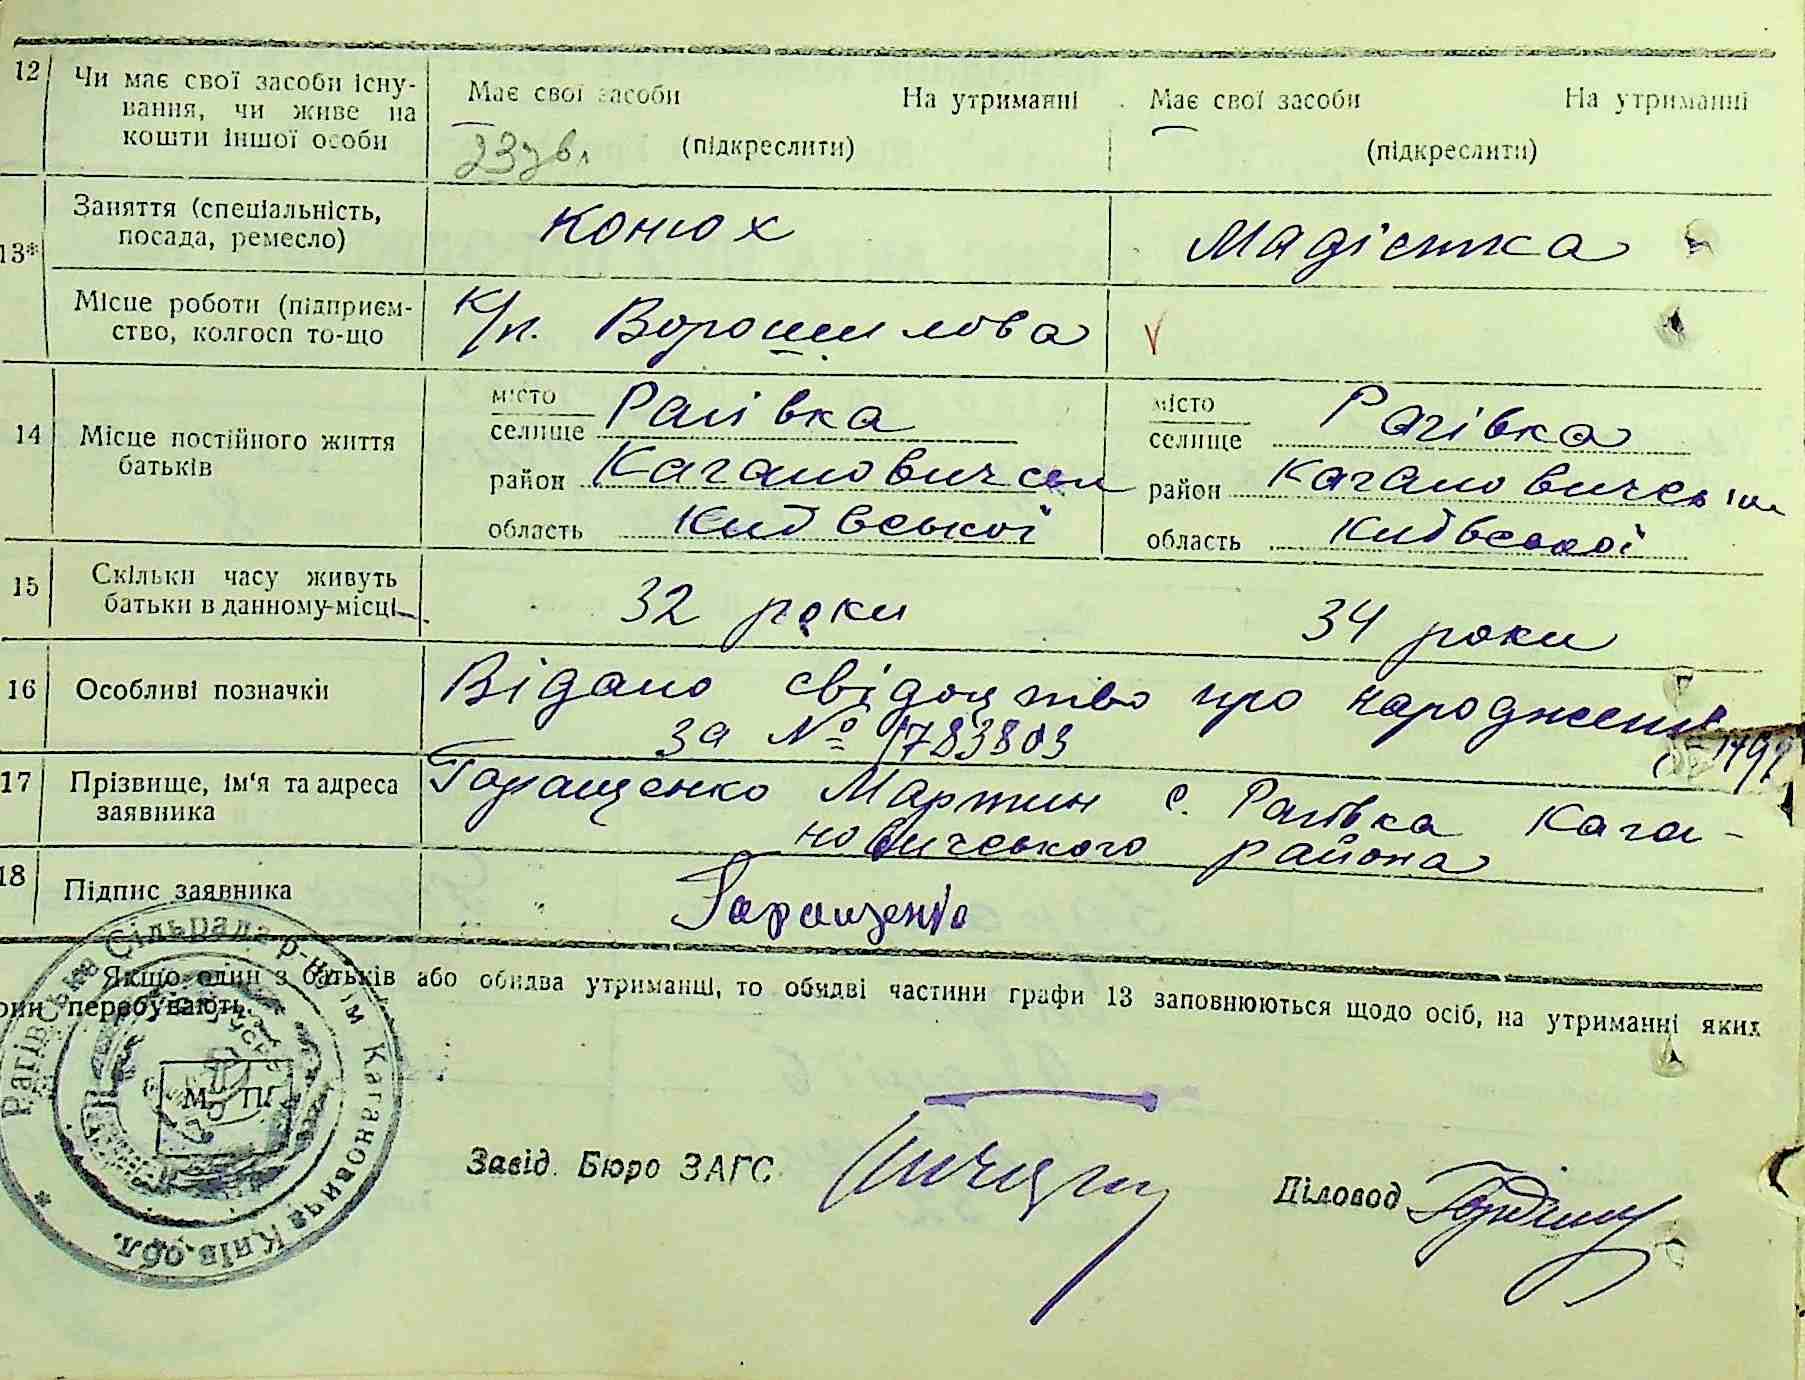 12 Чи має свої засоби існу-
вання, чи живе на
кошти іншої особи
Має свої засоби На утриманні
(підкреслити)
Має свої засоби На утриманні
(підкреслити)
13* Заняття (спеціальність,
посада, ремесло)
конюх
Місце роботи (підприєм-
ство, колгосп то-що
к/п. Ворошилова
V
14 Місце постійного життя
батьків
місто
селище Рагівка
район Кагановичськ
область Київської
місто
селище Рагівка
район Кагановичськ
область Київської
15 Скільки часу живуть
батьки в данному місці
32 роки
34 роки
16 Особливі позначки
Відано свідоцтво про народження
за № 1783803
17 Прізвище, ім'я та адреса
заявника
Горащенко Мартин с. Рагівка Кага-
новичського района
18 Підпис заявника
Горащенко
Якщо один з батьків або обидва утриманці, то обидві частини графи 13 заповнюються щодо осіб, на утриманні яких
они перебувають.
Рагівська Сільрада р-ну ім Кагановича Київ.обл.
М. П.
Завід. Бюро ЗАГС
Діловод